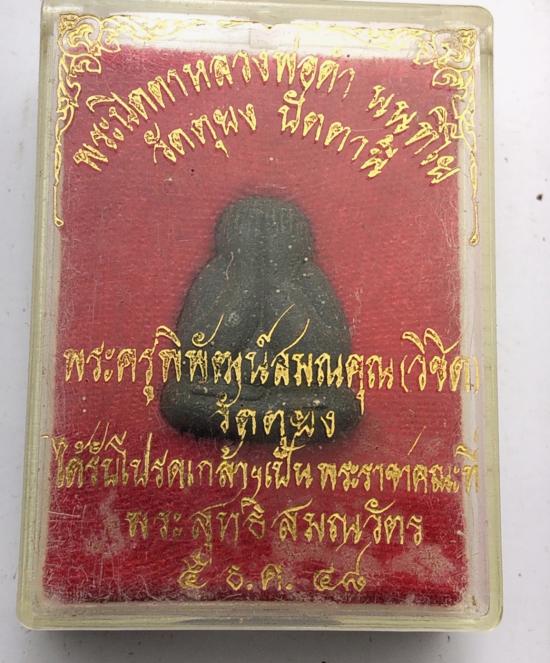 พระปิดตาหลวงพ่อดำ นนทิโย
วัดตุยง ปัตตานี
พระครูพิพัฒน์สมณคุณ(วิชิต)
วัดตุยง
ได้รับโปรดเกล้าฯเป็นพระราชาคณะที่
พระสุทธิสมณวัตร
๕ ธ.ค. ๔๘